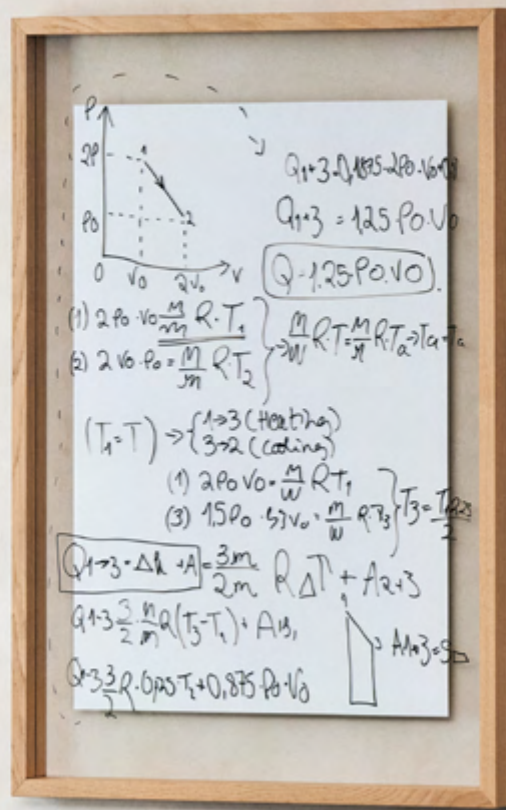 P
2P
1
P0
2
0
V0
2V0
V
Q1+3=0,1875·2P0·V0+0,8
Q1+3 = 1,25 P0·V0
Q=1.25·P0·V0
(1) 2P0·V0 M/m R·T1
(2) 2V0·P0 = M/m R·T2
⇒ M/W R·T = M/M R·Ta → Ta = Ta
(T1=T) ⇒ { 1→3 (Heating)
3→2 (Cooling)
(1) 2P0V0 = M/W RT1
(3) 1,5P0
Q1→3 = Δ
+A = 3m/2m RΔT + A2+3
Q1-3 3/2 · n/m R(T3-T1) + A
1
3
A1+3=S
Q1-3 3/2 R·0,125T2+0,875·P0·V0